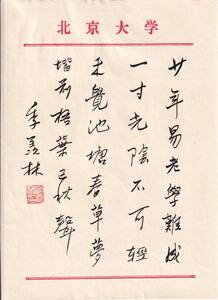 北京大学
少年易老學難成
一寸光陰不可輕
未覺池塘春草夢
堦前梧葉已秋聲
季羡林